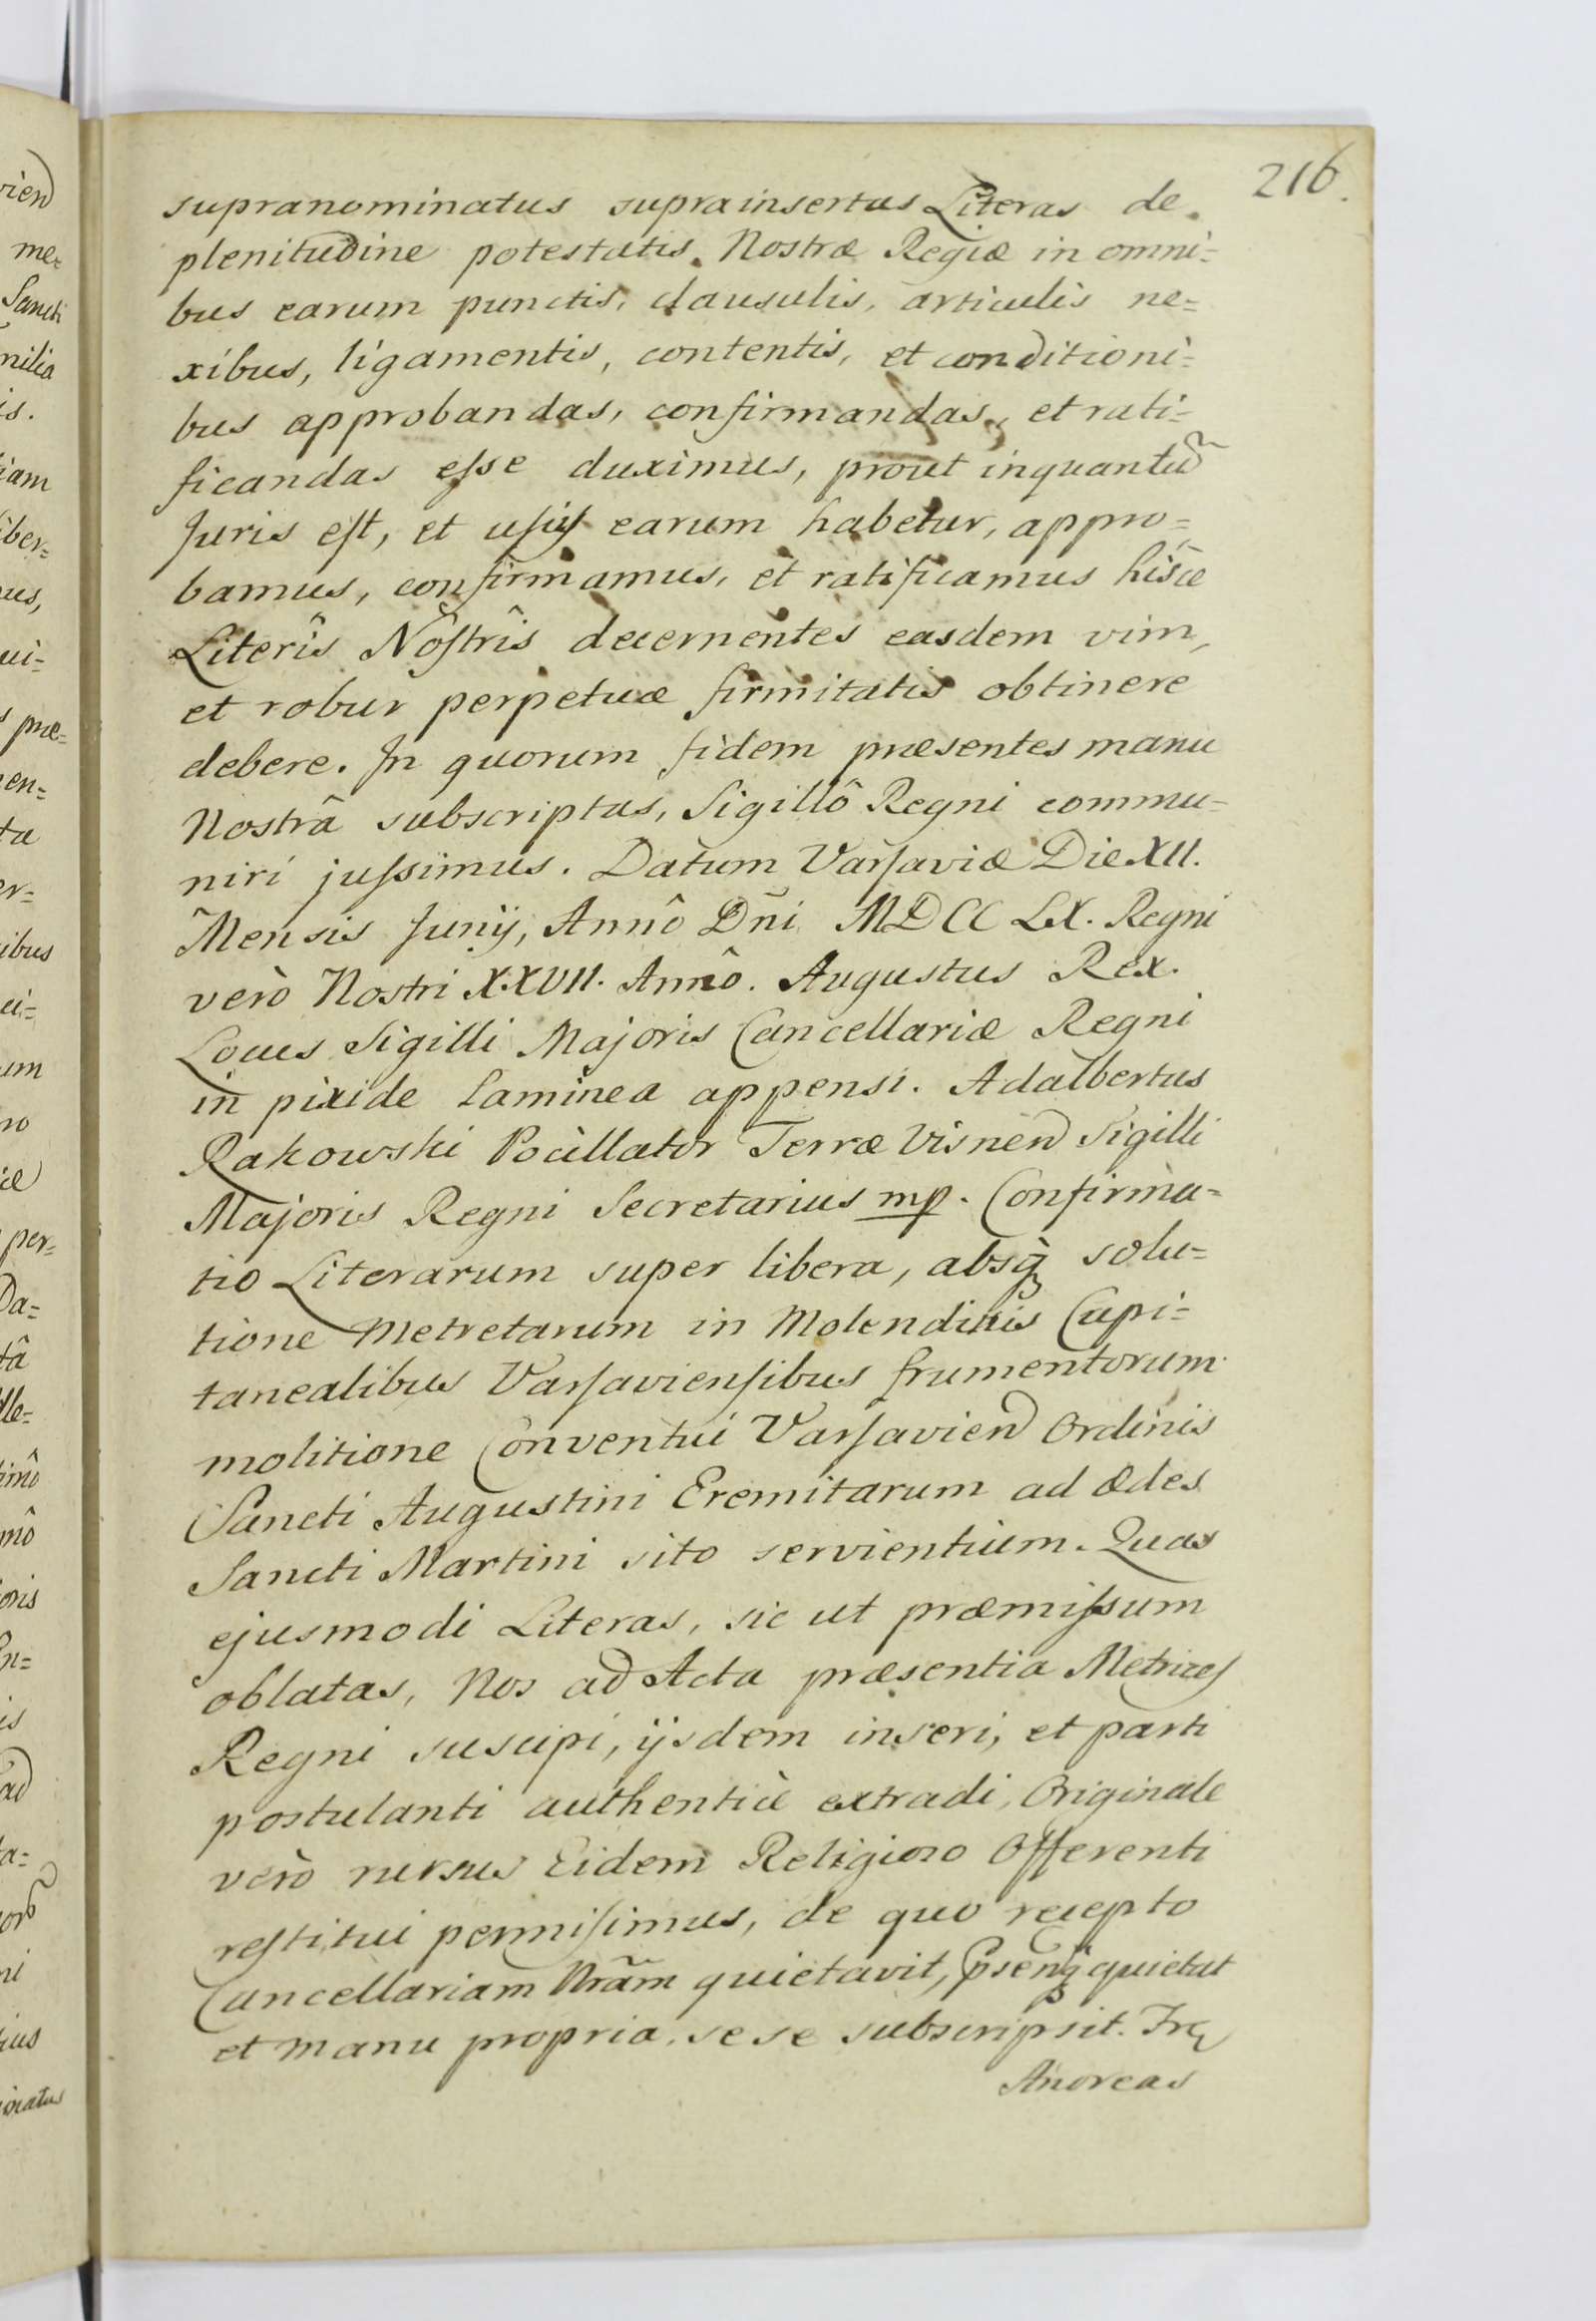 216.
supranominatus suprainsertas Literas de
plenitudine potestatis Nostræ Regiæ in omni=
bus earum punctis, clausulis, articulis ne=
xibus, ligamentis, contentis, et conditioni=
bus approbandas, confirmandas, et rati=
ficandas eſse duximus, prout inquantū
Juris eſt, et uſus earum habetur, appro=
bamus, confirmamus, et ratificamus hisce
Literîs Noſtrîs decernentes easdem vim,
et robur perpetuæ firmitatis obtinere
debere. In quorum fidem præsentes manu
Nostrâ subscriptas, Sigillô Regni commu=
niri juſsimus. Datum Varſaviæ Die XII.
Mensis Junij, Annô Dñi MDCCLX. Regni
verò Nostri XXVII. Annô. Augustus Rex.
Locus Sigilli Majoris Cancellariæ Regni
in pixide laminea appensi. Adalbertus
Rakowski Pocillator Terræ Visnen Sigilli
Majoris Regni Secretarius mp. Confirma=
tio Literarum super libera, absq solu=
tione Metretarum in Molendinis Capi=
tanealibus Varſavienſibus frumentorum
molitione Conventui Varſavien Ordinis
Sancti Augustini Eremitarum ad Ædes
Sancti Martini sito servientium. Quas
ejusmodi Literas, sic ut præmiſsum
oblatas, Nos ad Acta præsentia Metrices
Regni suscipi, ijsdem inseri, et parti
postulanti authenticè extradi, Originale
verò rursus Eidem Religioso Offerenti
reſtitui permiſimus, de quo recepto
Cancellariam Nrãm quietavit, pſenq quietat
et manu propria sese subscripsit. Fr
Andreas
vien
me=
Sancti
milia
is.
iam
iber=
us,
ui=
præ=
en=
ta
er=
ibus
ci=
um
no
per=
Da=
tâ
lle=
imô
mô
oris
is
a=
ni
ius
inatus